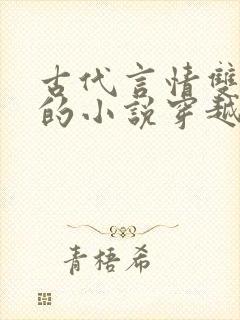 古代言情雙
的小說穿越
青梧希